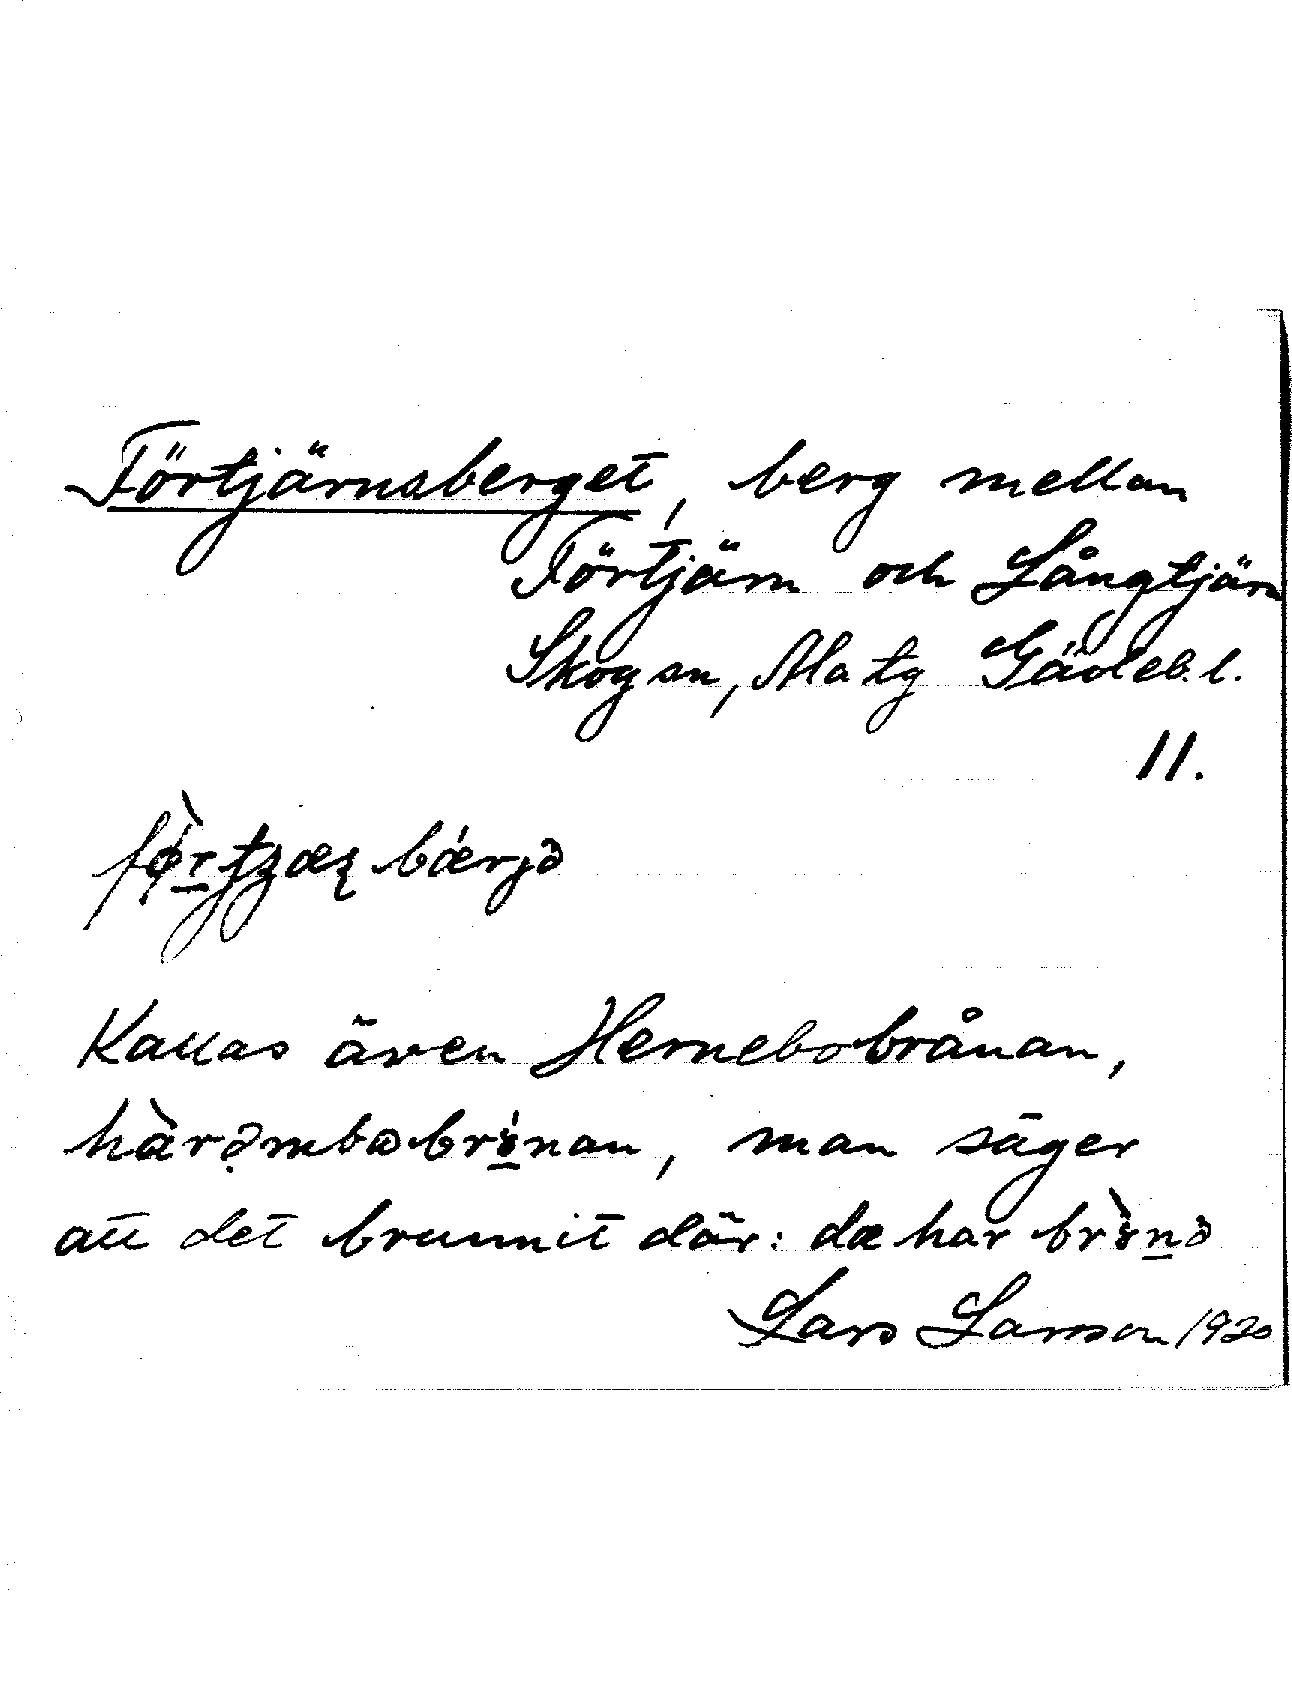 Förtjärnsberget, berg mellan
Förtjärn och Långtjärn
Skogen, Ma tg Gävleb. l.
11.
bǽrjə
Kallas även Hernebobrånan,
man säger
att det brunnit där: dæ har
Lars Larsson 1920